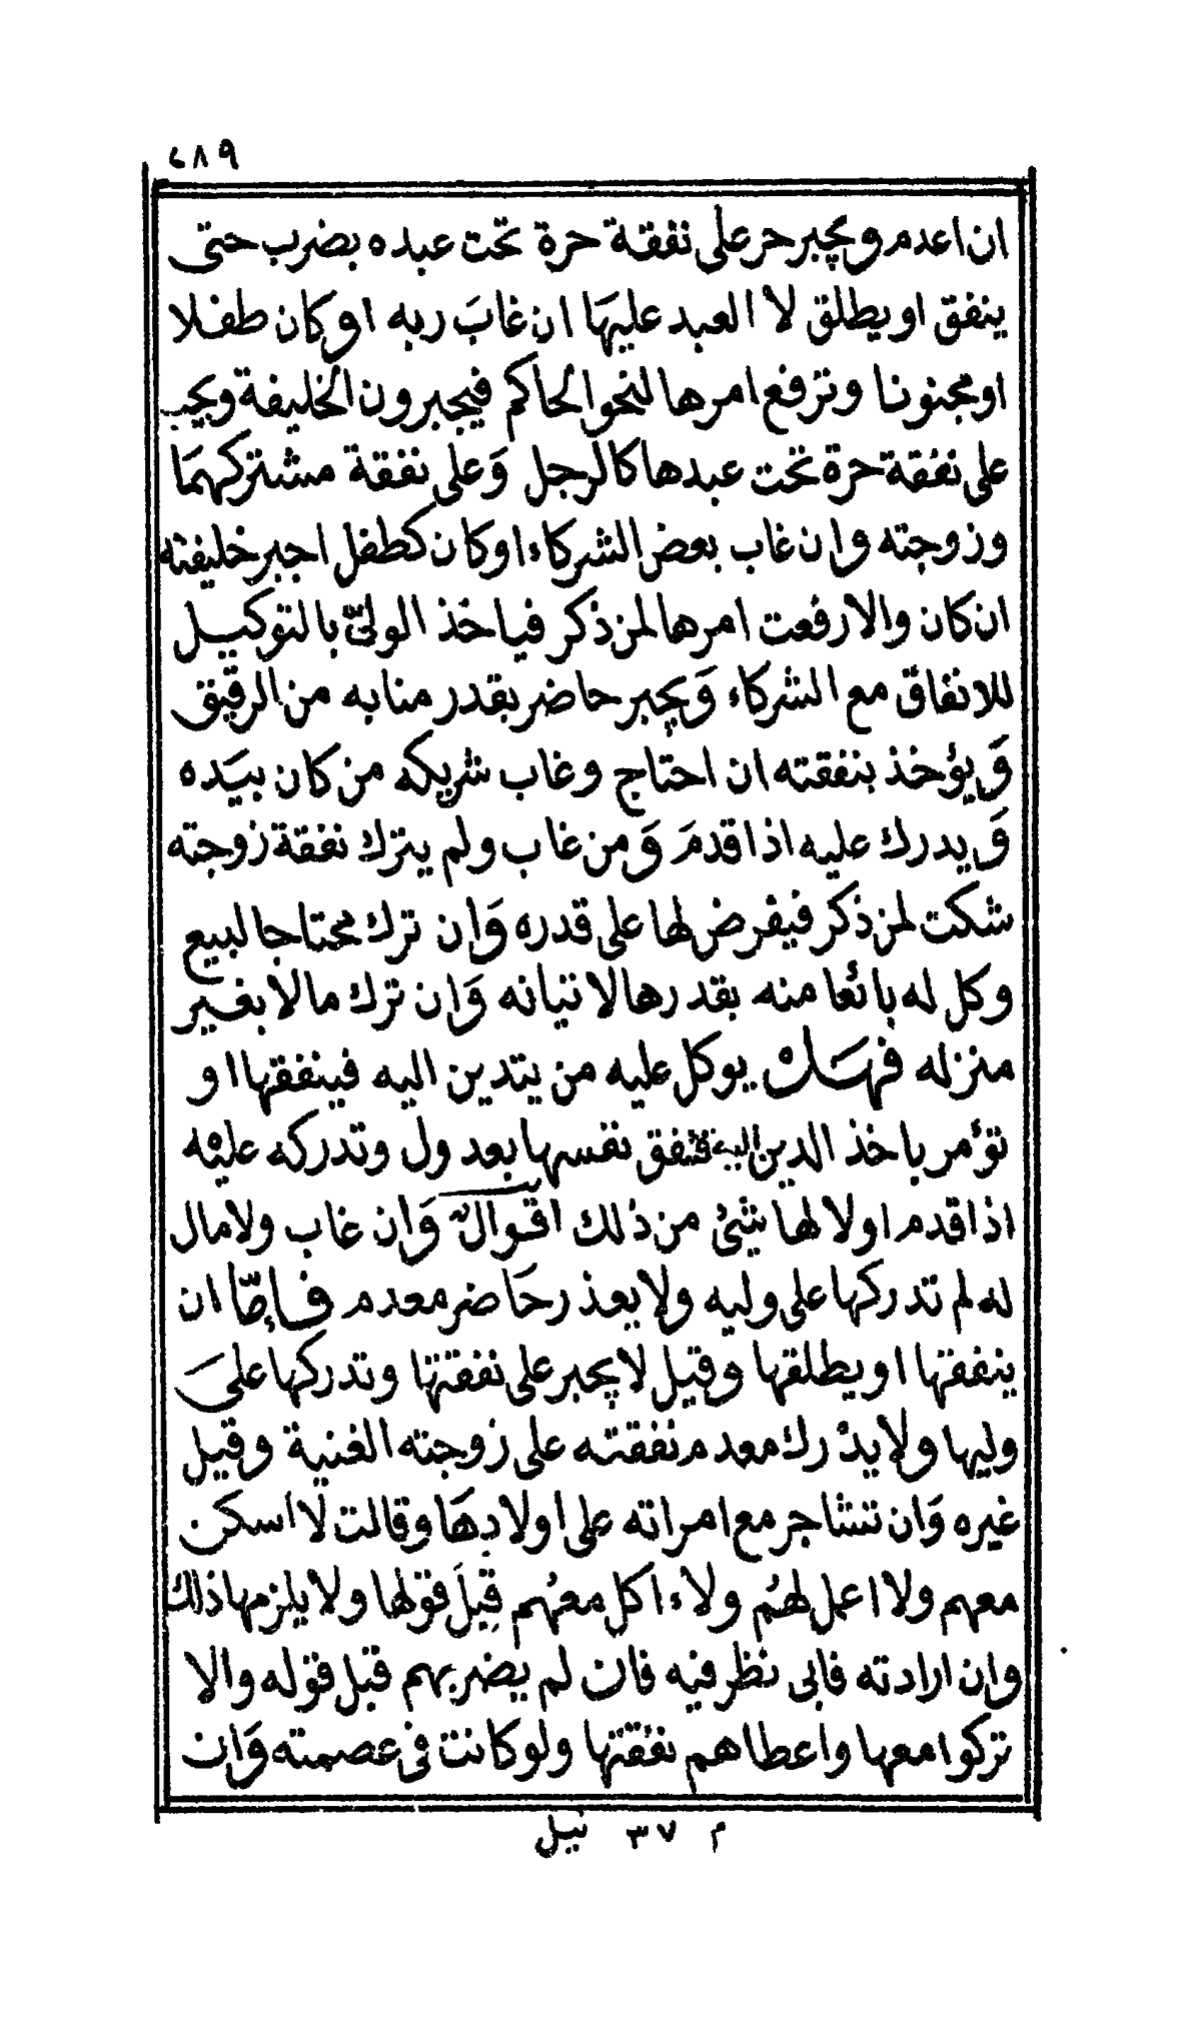 ٢٨٩
ان اعدم ويجبر حر على نفقة حرة تحت عبده بضرب حتى
ينفق او يطلق لا العبد عليهَا ان غابَ ربه او كان طفلا
او مجنونا وترفع امرها لنحو الحاكم فيجبرون الخليفة ويجب
على نفقة حرة تحت عبدها كالرجل وَعلى نفقة مشتركهمَا
وزوجته وان غاب بعض الشركاء او كان كطفل اجبر خليفته
ان كان والا رفعت امرها لمن ذكر فياخذ الولىّ بالتوكيل
للانفاق مع الشركاء وَيجبر حاضر بقدر منابه من الرقيق
وَيؤخذ بنفقته ان احتاج وغاب شريكه من كان بيَده
وَيدرك عليه اذا قدمَ وَمن غاب ولم يترك نفقة زوجته
شكت لمن ذكر فيفرض لها على قدره وَان ترك محتاجا لبيع
وكل له بائعا منه بقدرها لاتيانه وَان ترك مالا بغير
منزله فهَل يوكل عليه من يتدين اليه فينفقها او
تؤمر باخذ الدين اليه فتنفق نفسها بعدول وتدركه عليْه
اذا قدم اولا لها شئ من ذلك اقوال وَان غاب ولامال
له لم تدركها على وليه ولا يعذر حَاضر معدم فإمّا ان
ينفقها او يطلقها وقيل لا يجبر على نفقتها وتدركها علىَ
وليها ولا يدْرك معدم نفقته على زوجته الغنية وقيل
غيره وَان تشاجر مع امراته على اولادهَا وقالت لا اسكن
معهم ولا اعمل لهُم ولاءاكل معهُم قِبَل قولها ولا يلزمها ذلك
وان ارادته فابى نظر فيه فان لم يضر بهم قبل قوله والا
تركوا معها واعطاهم نفقتها ولو كانت فى عصمته وَان
م ٣٧ نيل